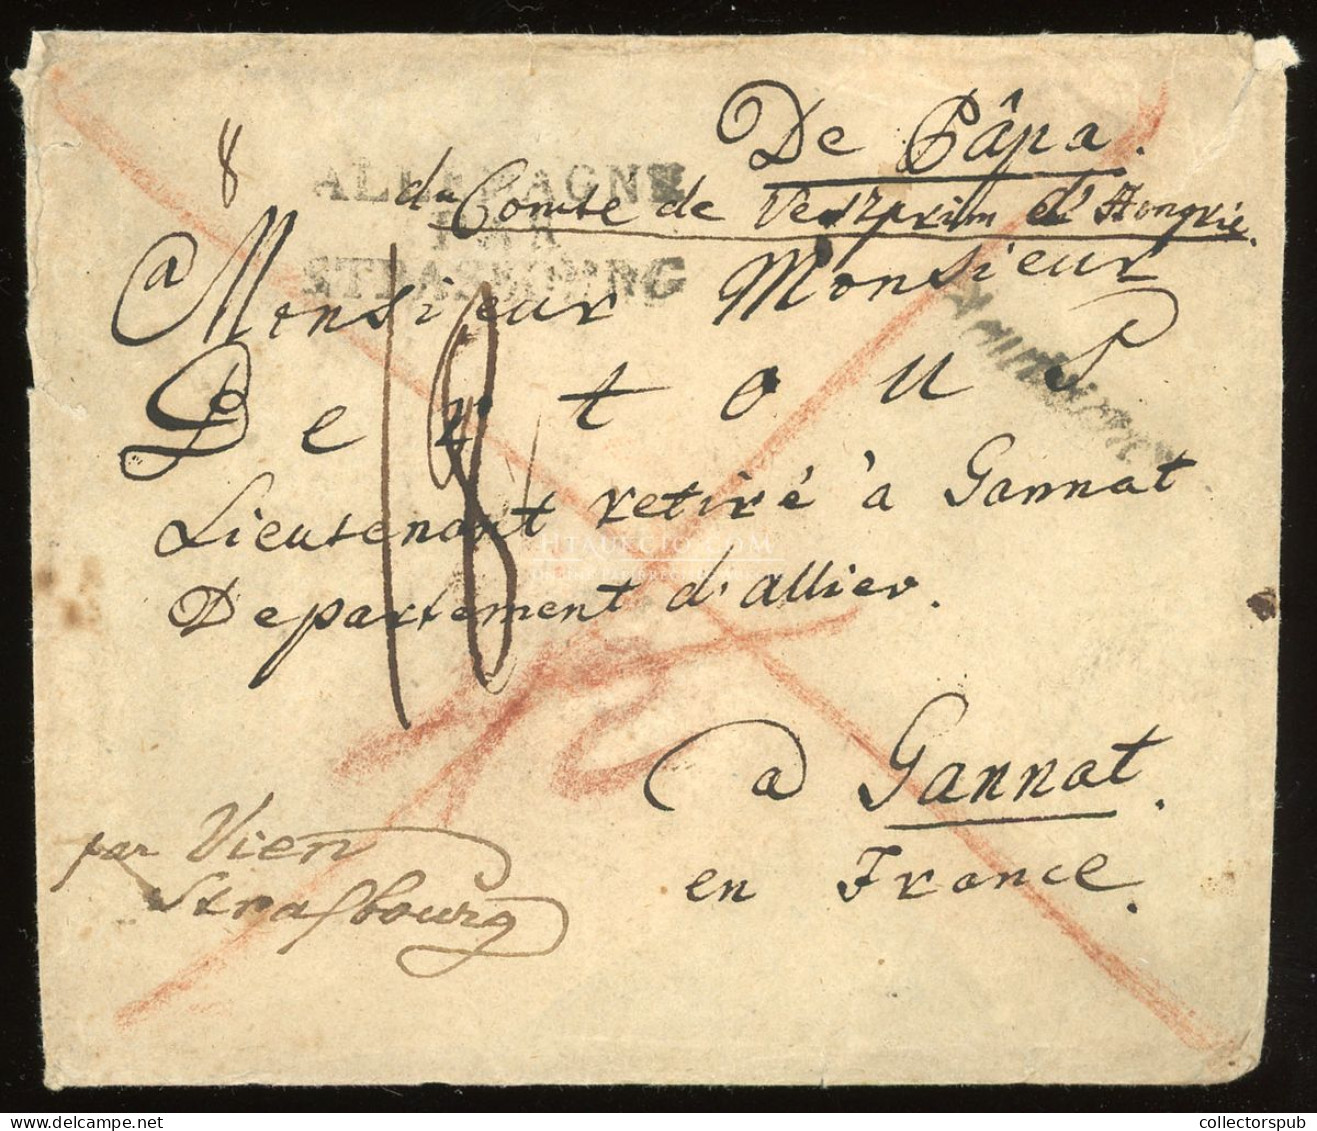 De Pâpa.
8
ALLEMAGNE
PAR
STRASBOURG
du Comte de Veszprim d'Hongrie.
a Monsieur Monsieur
Lieutenant retiré à Gannat
Departement d'allier.
18
a Gannat.
en France.
par Vien
Straſbourg
HTAUCCIO.COM
collectorspub